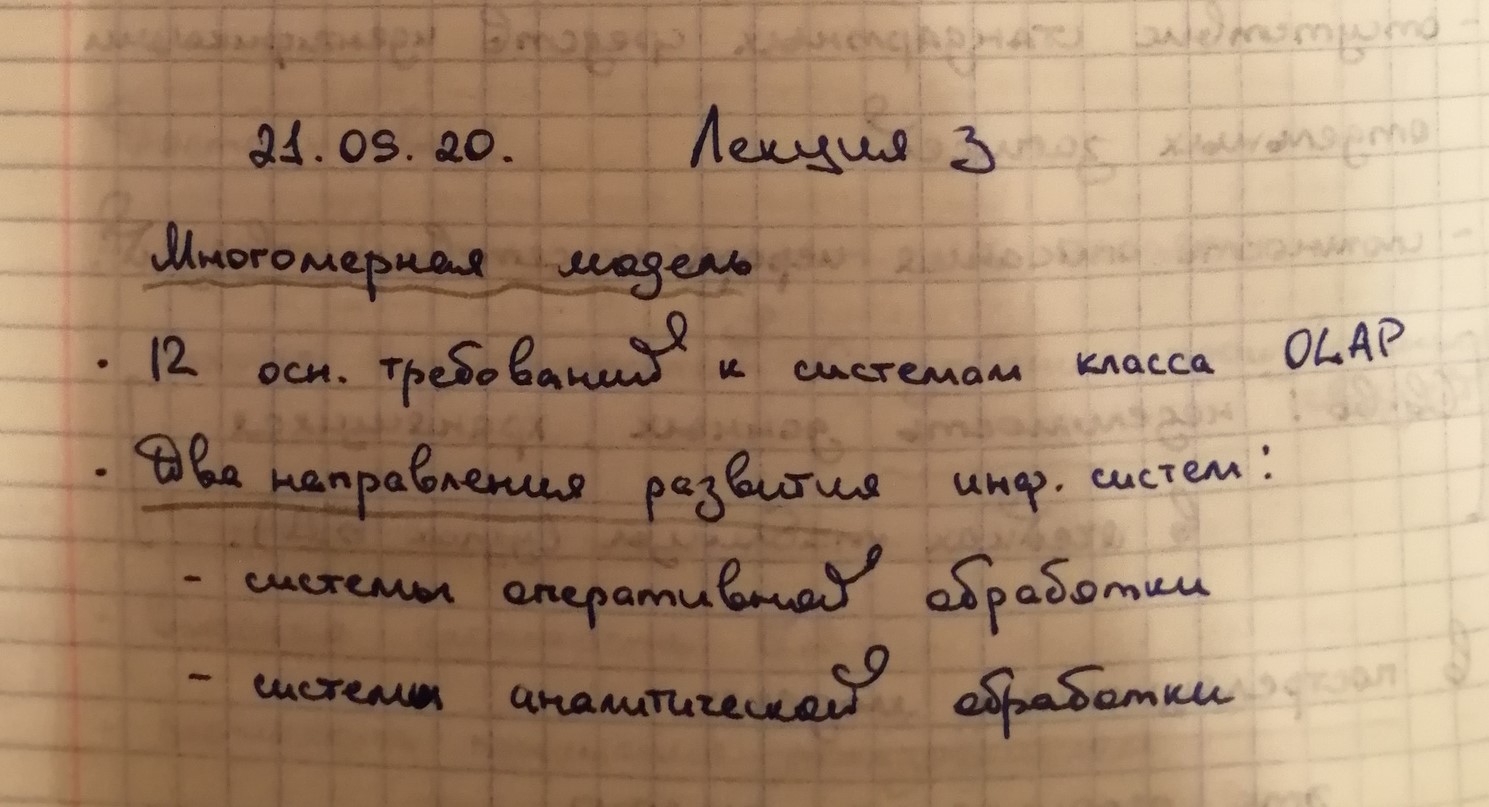 21.09.20. Лекция 3
Многомерная модель
· 12 осн. требований к системам класса OLAP
· Два направления развития инф. систем:
- системы оперативной обработки
- системы аналитической обработки